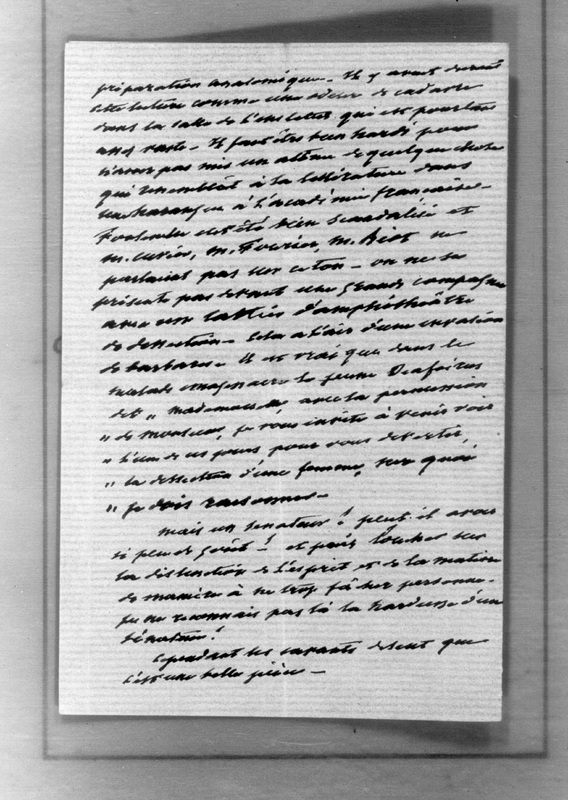 préparation anatomique. Il y avait durant
cette lecture comme une odeur de cadavre
dans la salle de l'Institut qui est pourtant
assez vaste. Il faut être bien hardi pour
n'avoir pas mis un atôme de quelque chose
qui ressemblât à la littérature dans
une harangue à l'académie française.
Fontenelle eut été bien scandalisé et
M. Cuvier, M. Fourier, M. Biot ne
parlaient pas sur ce ton — on ne se
présente pas devant une grande compagnie
avec un tablier d'amphithéâtre
de dissection. Cela a l'air d'une invasion
de barbares. Il est vrai que dans le
malade imaginaire le jeune Diafoirus
dit " Mademoiselle, avec la permission
" de Monsieur, je vous invite à venir voir
" l'un de ces jours pour vous divertir,
" la dissection d'une femme, sur quoi
" je dois raisonner —
Mais un senateur! peut il avoir
si peu de goût! et puis toucher sur
la distinction de l'esprit et de la matière
de manière à ne trop fâcher personne.
je ne reconnais pas là la hardiesse d'un
sénateur!
Cependant les savants disent que
c'est une belle pièce —